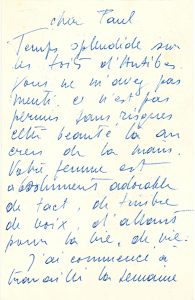 cher Paul
Temps splendide sur
les toits d'Antibes.
Vous ne m'avez pas
menti. et n'est pas
permis sans risques
cette beauté là au
creux de la main.
Votre femme est
absolument adorable
de tact, de timbre
de voix, d'allant
pour la vie, de vie.
J'ai commencé à
travailler la semaine